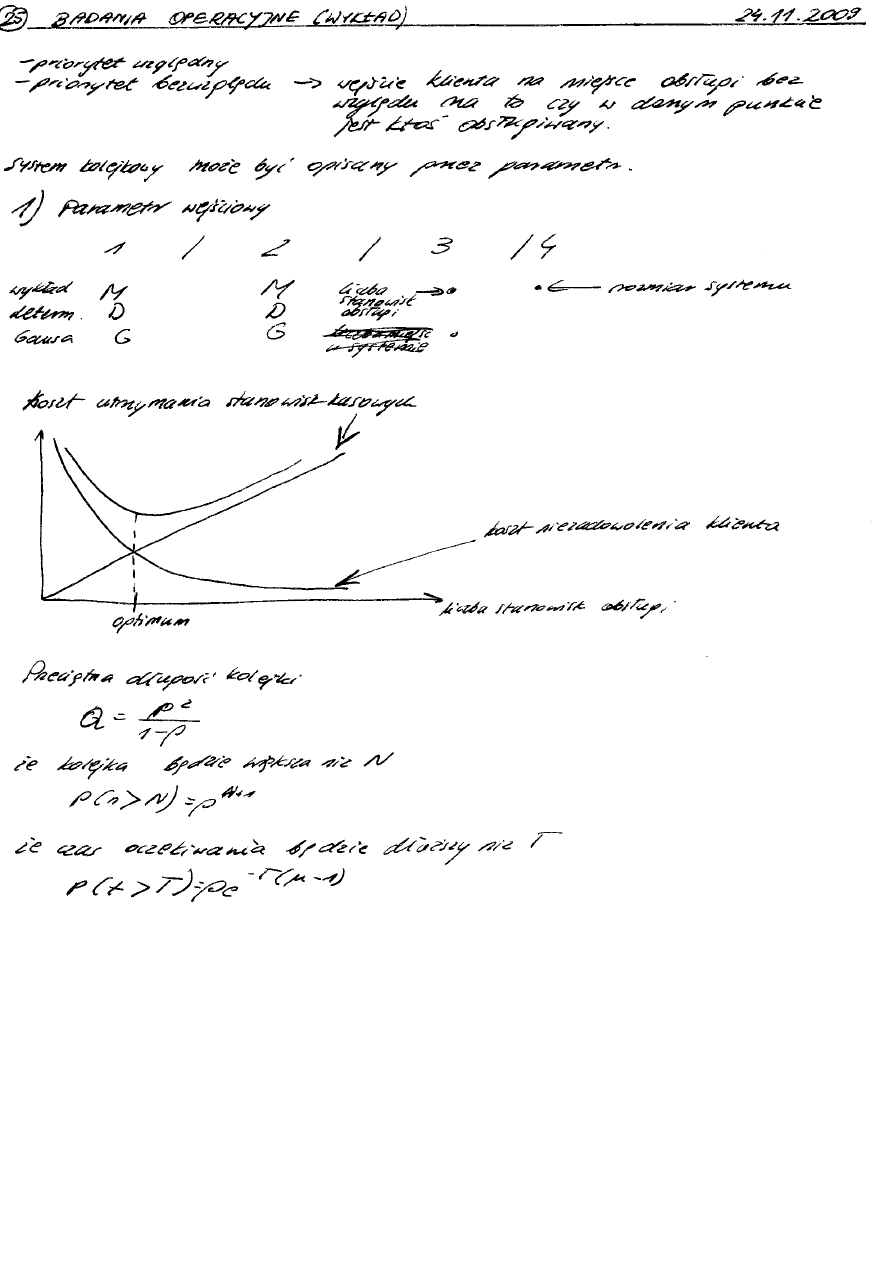 25 BADANIA OPERACYJNE (WYKŁAD) 24.11.2009
- priorytet względny
- priorytet bezwzględu → wejście klienta na miejsce obsługi bez
względu na to czy w danym punkcie
jest ktoś obsługiwany.
System kolejkowy może być opisany przez parametr.
1) Parametr wejściowy
1 / 2 / 3 / 4
wykład M M liczba stanowisk obsługi → • • ← rozmiar systemu
determ. D D
Gausa G G •
Koszt utrzymania stanowisk kasowych
koszt niezadowolenia klienta
liczba stanowisk obsługi
optimum
Przeciętna długość kolejki
Q = ρ² / 1-ρ
że kolejka będzie większa niż N
P(n>N)=ρ^N+1
że czas oczekiwania będzie dłuższy niż T
P(t>T)=ρe^-T(μ-1)